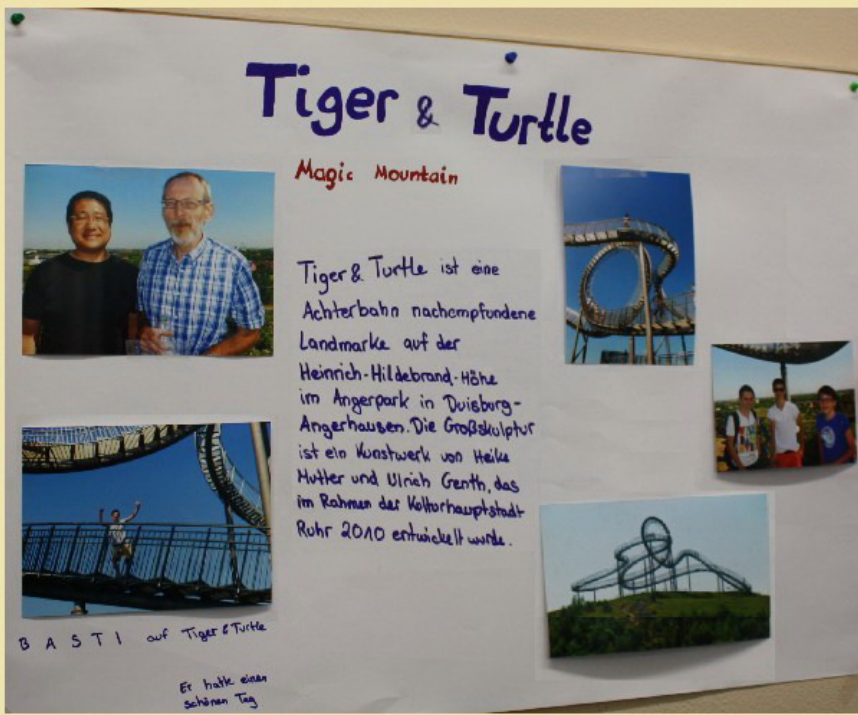 Tiger & Turtle
Magic Mountain
Tiger & Turtle ist eine
Achterbahn nachempfundene
Landmarke auf der
Heinrich-Hildebrand-Höhe
im Angerpark in Duisburg-
Angerhausen. Die Großskulptur
ist ein Kunstwerk von Heike
Mutter und Ulrich Genth, das
im Rahmen der Kulturhauptstadt
Ruhr 2010 entwickelt wurde.
BASTI auf Tiger & Turtle
Er hatte einen
schönen Tag